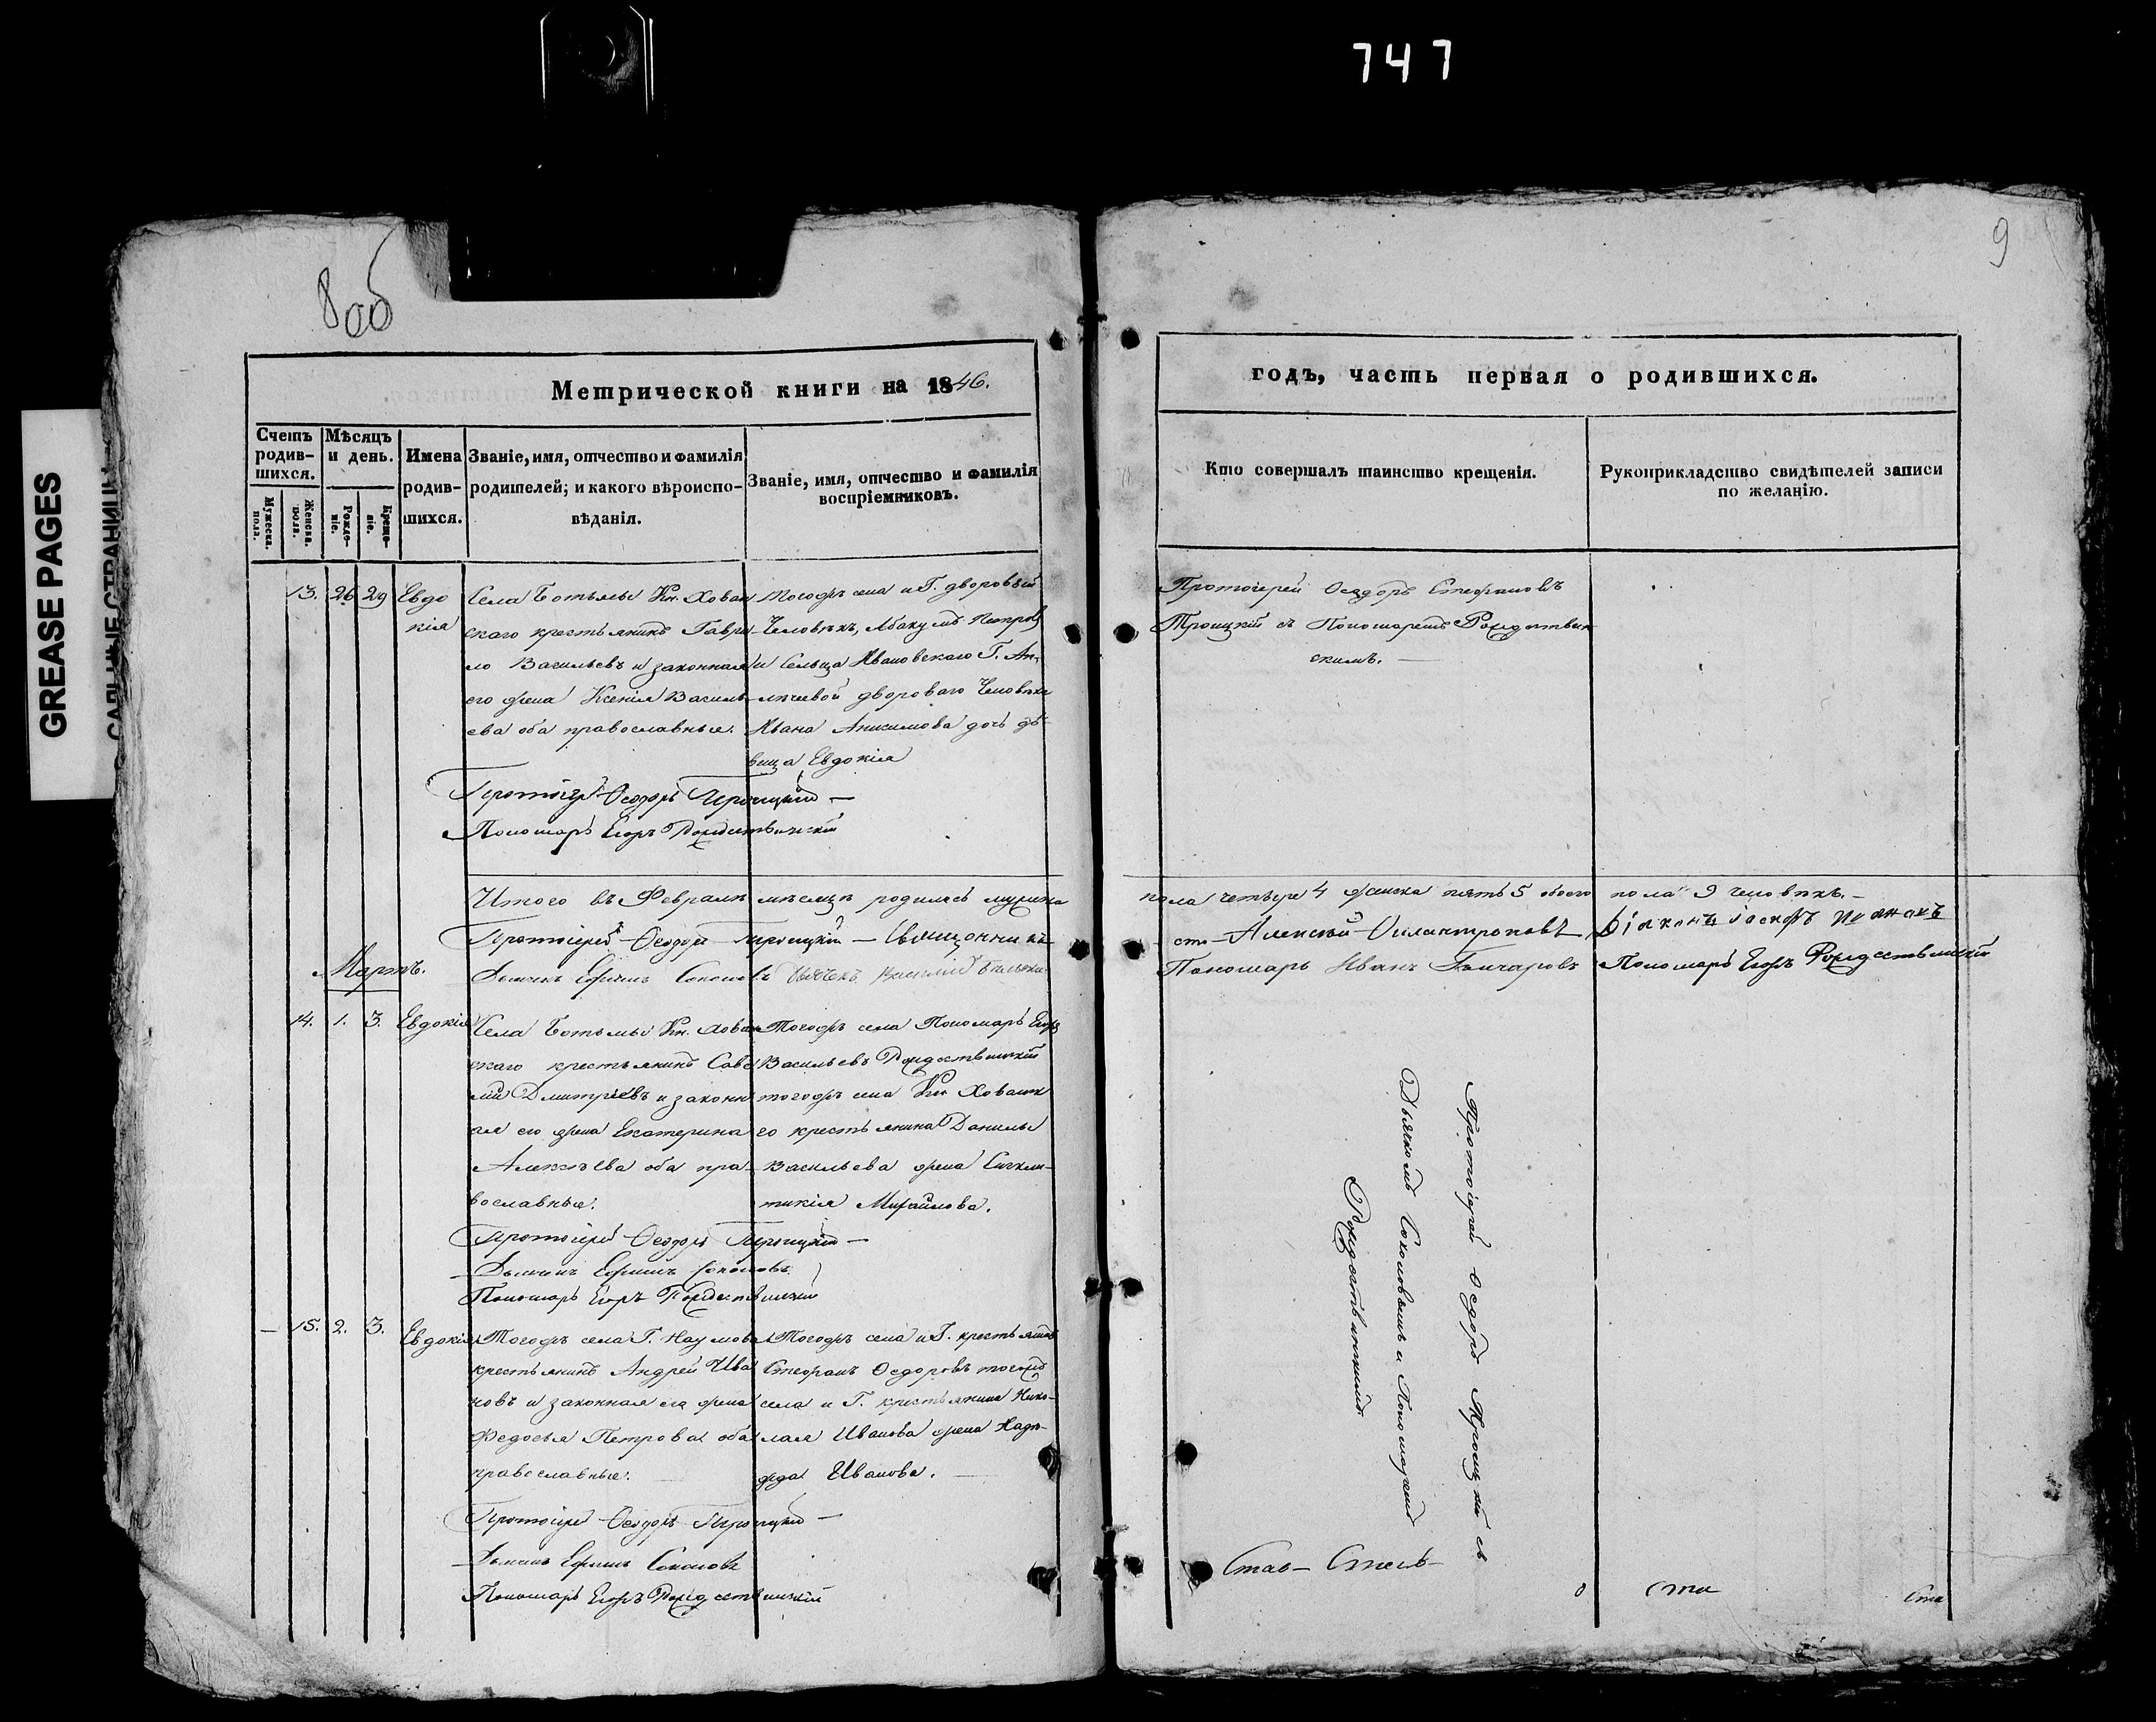 747
GREASE PAGES
8 об
9
Метрической книги на 1846.
годъ, часть первая о родившихся.
Счетъ родив-шихся.
Мужеска. пола.
Женска. пола.
Мѣсяцъ и день.
Рожде-ніе.
Креще-ніе.
Имена родив-шихся.
Званіе, имя, отчество и фамилія родителей; и какого вѣроиспо-вѣданія.
Званіе, имя, отчество и фамилія воспріемниковъ.
Кто совершалъ таинство крещенія.
Рукоприкладство свидѣтелей записи по желанію.
13. 26 29 Евдо
кія
Села Ботьмы Кн. Хован
скаго крестьянинъ Гаври
ло Васильевъ и законная
его жена Ксенія Василь
ева оба православные.
Тогожъ села и Г. дворовый
Человѣкъ, Абакумъ
и Сельца Ивановскаго Г.
дворового Человѣка
Ивана Анисимова дочь дѣ-
вица Евдокія
Протоіерей Ѳеодоръ Стефановъ
Троицкій съ Пономаремъ Рождествен
скимъ. —
Протоіерей Ѳеодоръ Троицкій —
Пономарь Егоръ Рождественскій
Итого въ Февралѣ мѣсяцѣ родилось мужеска
пола четыре 4 женска пять 5 обоего пола 9 человѣкъ. —
Протоіерей Ѳеодоръ Троицкій — Священникъ
Алексѣй Филантроповъ Діаконъ Іосифъ
Дьячекъ Ефимъ Соколовъ Дьячекъ Василій
Пономарь Иванъ Гончаровъ Пономарь Егоръ Рождественскій
Мартъ.
14. 1. 3. Евдокія
Села Ботьмы Кн. Хован
скаго крестьянинъ Саве
лій Дмитріевъ и законн
ая его жена Екатерина
Алексѣева оба пра-
вославные.
Тогожъ села Пономарь Егоръ
Васильевъ Рождественскій
тогожъ села Кн. Хованск
го крестьянина Данилы
Васильева жена Синкли-
тикія Михайлова.
Протоіерей Ѳеодоръ Троицкій съ
Дьячкомъ Соколовымъ и Пономаремъ
Рождественскимъ
Протоіерей Ѳеодоръ Троицкій —
Дьячекъ Ефимъ Соколовъ
Пономарь Егоръ Рождественскій
15. 2. 3. Евдокія
Тогожъ села Г. Наумова
крестьянинъ Андрей Ива
новъ и законная его жена
Федосья Петрова оба
православные.
Тогожъ села и Г. крестьянинъ
Стефанъ Ѳедоровъ тогожъ
села и Г. крестьянина Нико-
лая Иванова жена Надѣ-
жда Иванова.
Протоіерей Ѳеодоръ Троицкій —
Дьячекъ Ефимъ Соколовъ
Пономарь Егоръ Рождественскій